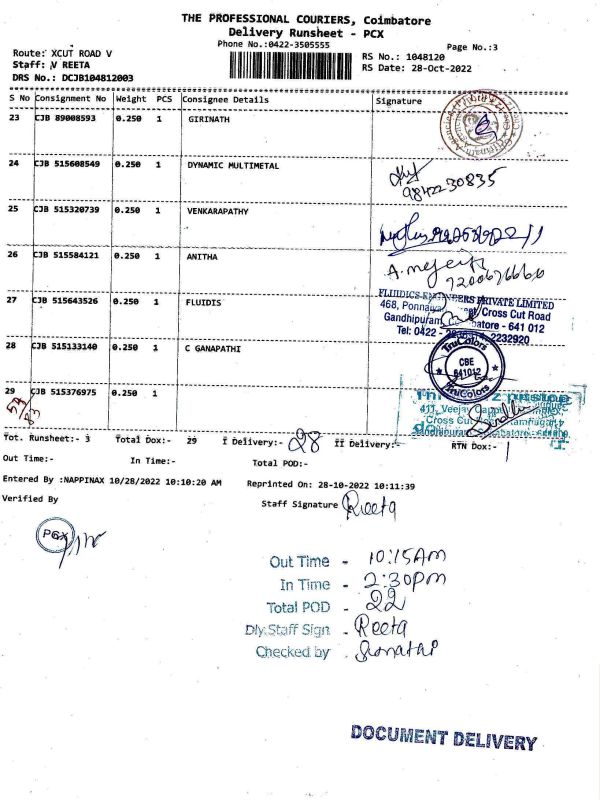 THE PROFESSIONAL COURIERS, Coimbatore
Delivery Runsheet - PCX
Phone No.:0422-3505555
Page No.:3
Route: XCUT ROAD V
RS No.: 1048120
Staff: V REETA
RS Date: 28-Oct-2022
DRS No.: DCJB104812003
S No Consignment No Weight PCS Consignee Details Signature
23 CJB 89008593 0.250 1 GIRINATH
24 CJB 515608549 0.250 1 DYNAMIC MULTIMETAL
9842230835
25 CJB 515320739 0.250 1 VENKARAPATHY
26 CJB 515584121 0.250 1 ANITHA
9200676666
27 CJB 515643526 0.250 1 FLUIDIS
FLUIDICS ENGINEERS PRIVATE LIMITED
468, Ponnaiya Street, Cross Cut Road
Gandhipuram, Coimbatore - 641 012
Tel: 0422 - 2232920
28 CJB 515133140 0.250 1 C GANAPATHI
TruColors
CBE
641012
TruColors
29 CJB 515376975 0.250 1
411, Veejay
Cross Cut
Gandhipuram, Coimbatore
Tot. Runsheet:- 3 Total Dox:- 29 I Delivery:- 28 II Delivery:- RTN Dox:- 1
Out Time:- In Time:- Total POD:-
Entered By :NAPPINAX 10/28/2022 10:10:20 AM Reprinted On: 28-10-2022 10:11:39
Verified By Staff Signature Reeta
PCX
Out Time - 10:15AM
In Time - 2:30pm
Total POD - 22
Dly.Staff Sign - Reeta
Checked by -
DOCUMENT DELIVERY